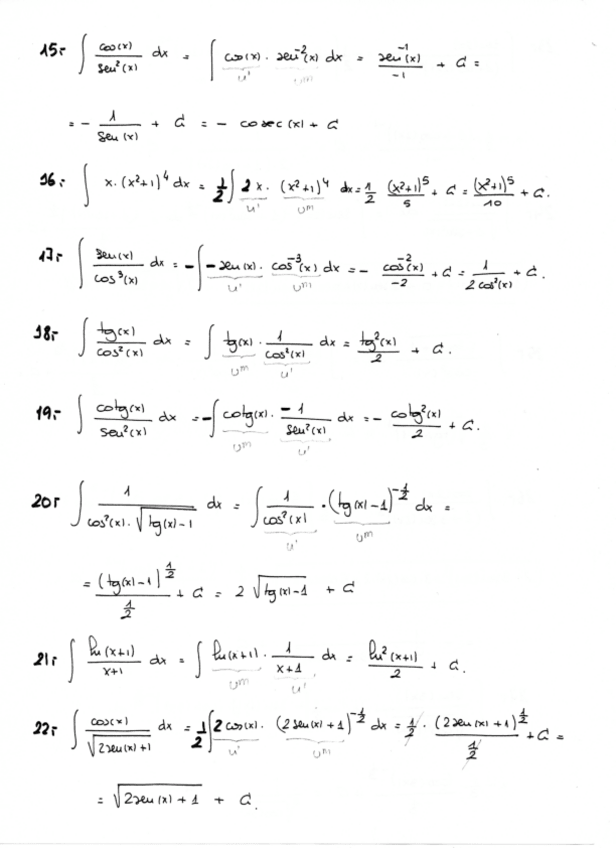 15.- ∫ cos(x)/sen²(x) dx = ∫ cos(x) · sen⁻²(x) dx = sen⁻¹(x)/-1 + C =
u' uᵐ
= - 1/sen(x) + C = - cosec(x) + C
16.- ∫ x·(x²+1)⁴ dx = 1/2 ∫ 2x · (x²+1)⁴ dx = 1/2 (x²+1)⁵/5 + C = (x²+1)⁵/10 + C.
u' uᵐ
17.- ∫ sen(x)/cos³(x) dx = -∫ -sen(x) · cos⁻³(x) dx = - cos⁻²(x)/-2 + C = 1/2cos²(x) + C.
u' uᵐ
18.- ∫ tg(x)/cos²(x) dx = ∫ tg(x) · 1/cos²(x) dx = tg²(x)/2 + C.
uᵐ u'
19.- ∫ cotg(x)/sen²(x) dx = -∫ cotg(x) · -1/sen²(x) dx = - cotg²(x)/2 + C.
uᵐ u'
20.- ∫ 1/cos²(x)·√tg(x)-1 dx = ∫ 1/cos²(x) · (tg(x)-1)^-1/2 dx =
u' uᵐ
= (tg(x)-1)^1/2 / 1/2 + C = 2 √tg(x)-1 + C
21.- ∫ ln(x+1)/x+1 dx = ∫ ln(x+1) · 1/x+1 dx = ln²(x+1)/2 + C.
uᵐ u'
22.- ∫ cos(x)/√2sen(x)+1 dx = 1/2 ∫ 2cos(x) · (2sen(x)+1)^-1/2 dx = 1/2 · (2sen(x)+1)^1/2 / 1/2 + C =
u' uᵐ
= √2sen(x)+1 + C.